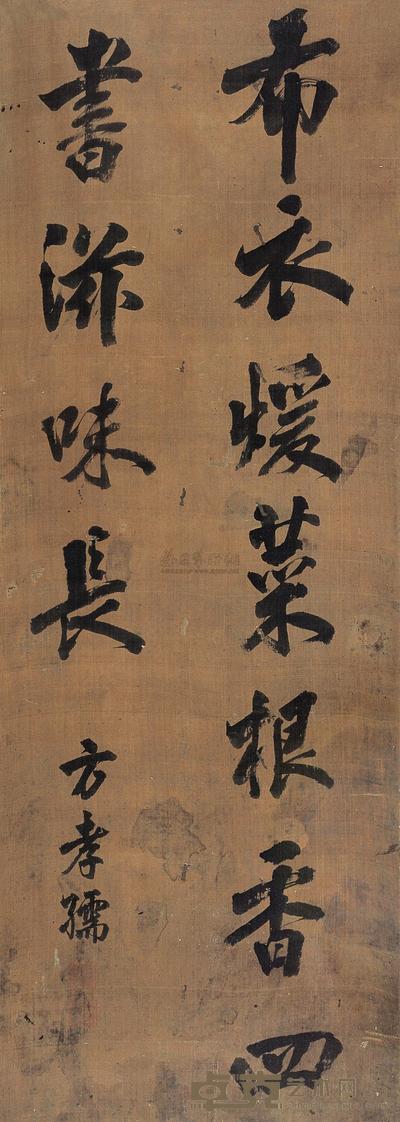 布衣煖菜根香四
書滋味長
方孝孺